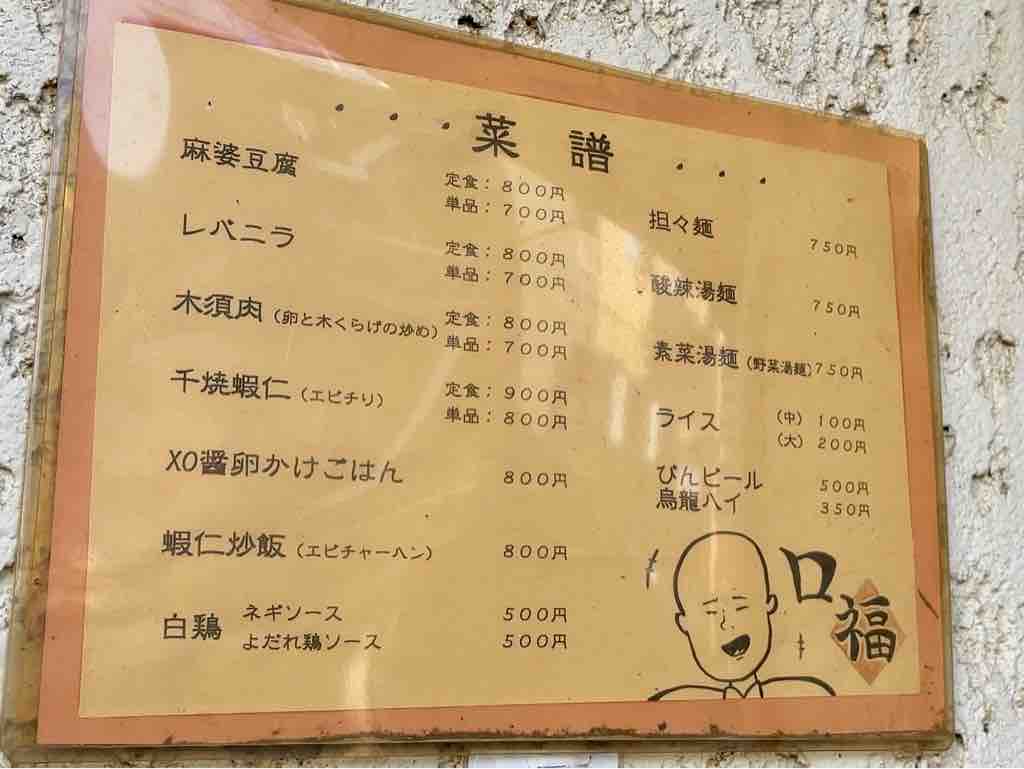 菜譜
麻婆豆腐
定食：８００円
単品：７００円
レバニラ
定食：８００円
単品：７００円
木須肉（卵と木くらげの炒め）
定食：８００円
単品：７００円
千焼蝦仁（エビチリ）
定食：９００円
単品：８００円
XO醤卵かけごはん ８００円
蝦仁炒飯（エビチャーハン） ８００円
白鶏 ネギソース ５００円
よだれ鶏ソース ５００円
担々麺 ７５０円
酸辣湯麺 ７５０円
素菜湯麺（野菜湯麺）７５０円
ライス （中） １００円
（大） ２００円
びんビール ５００円
烏龍ハイ ３５０円
口福